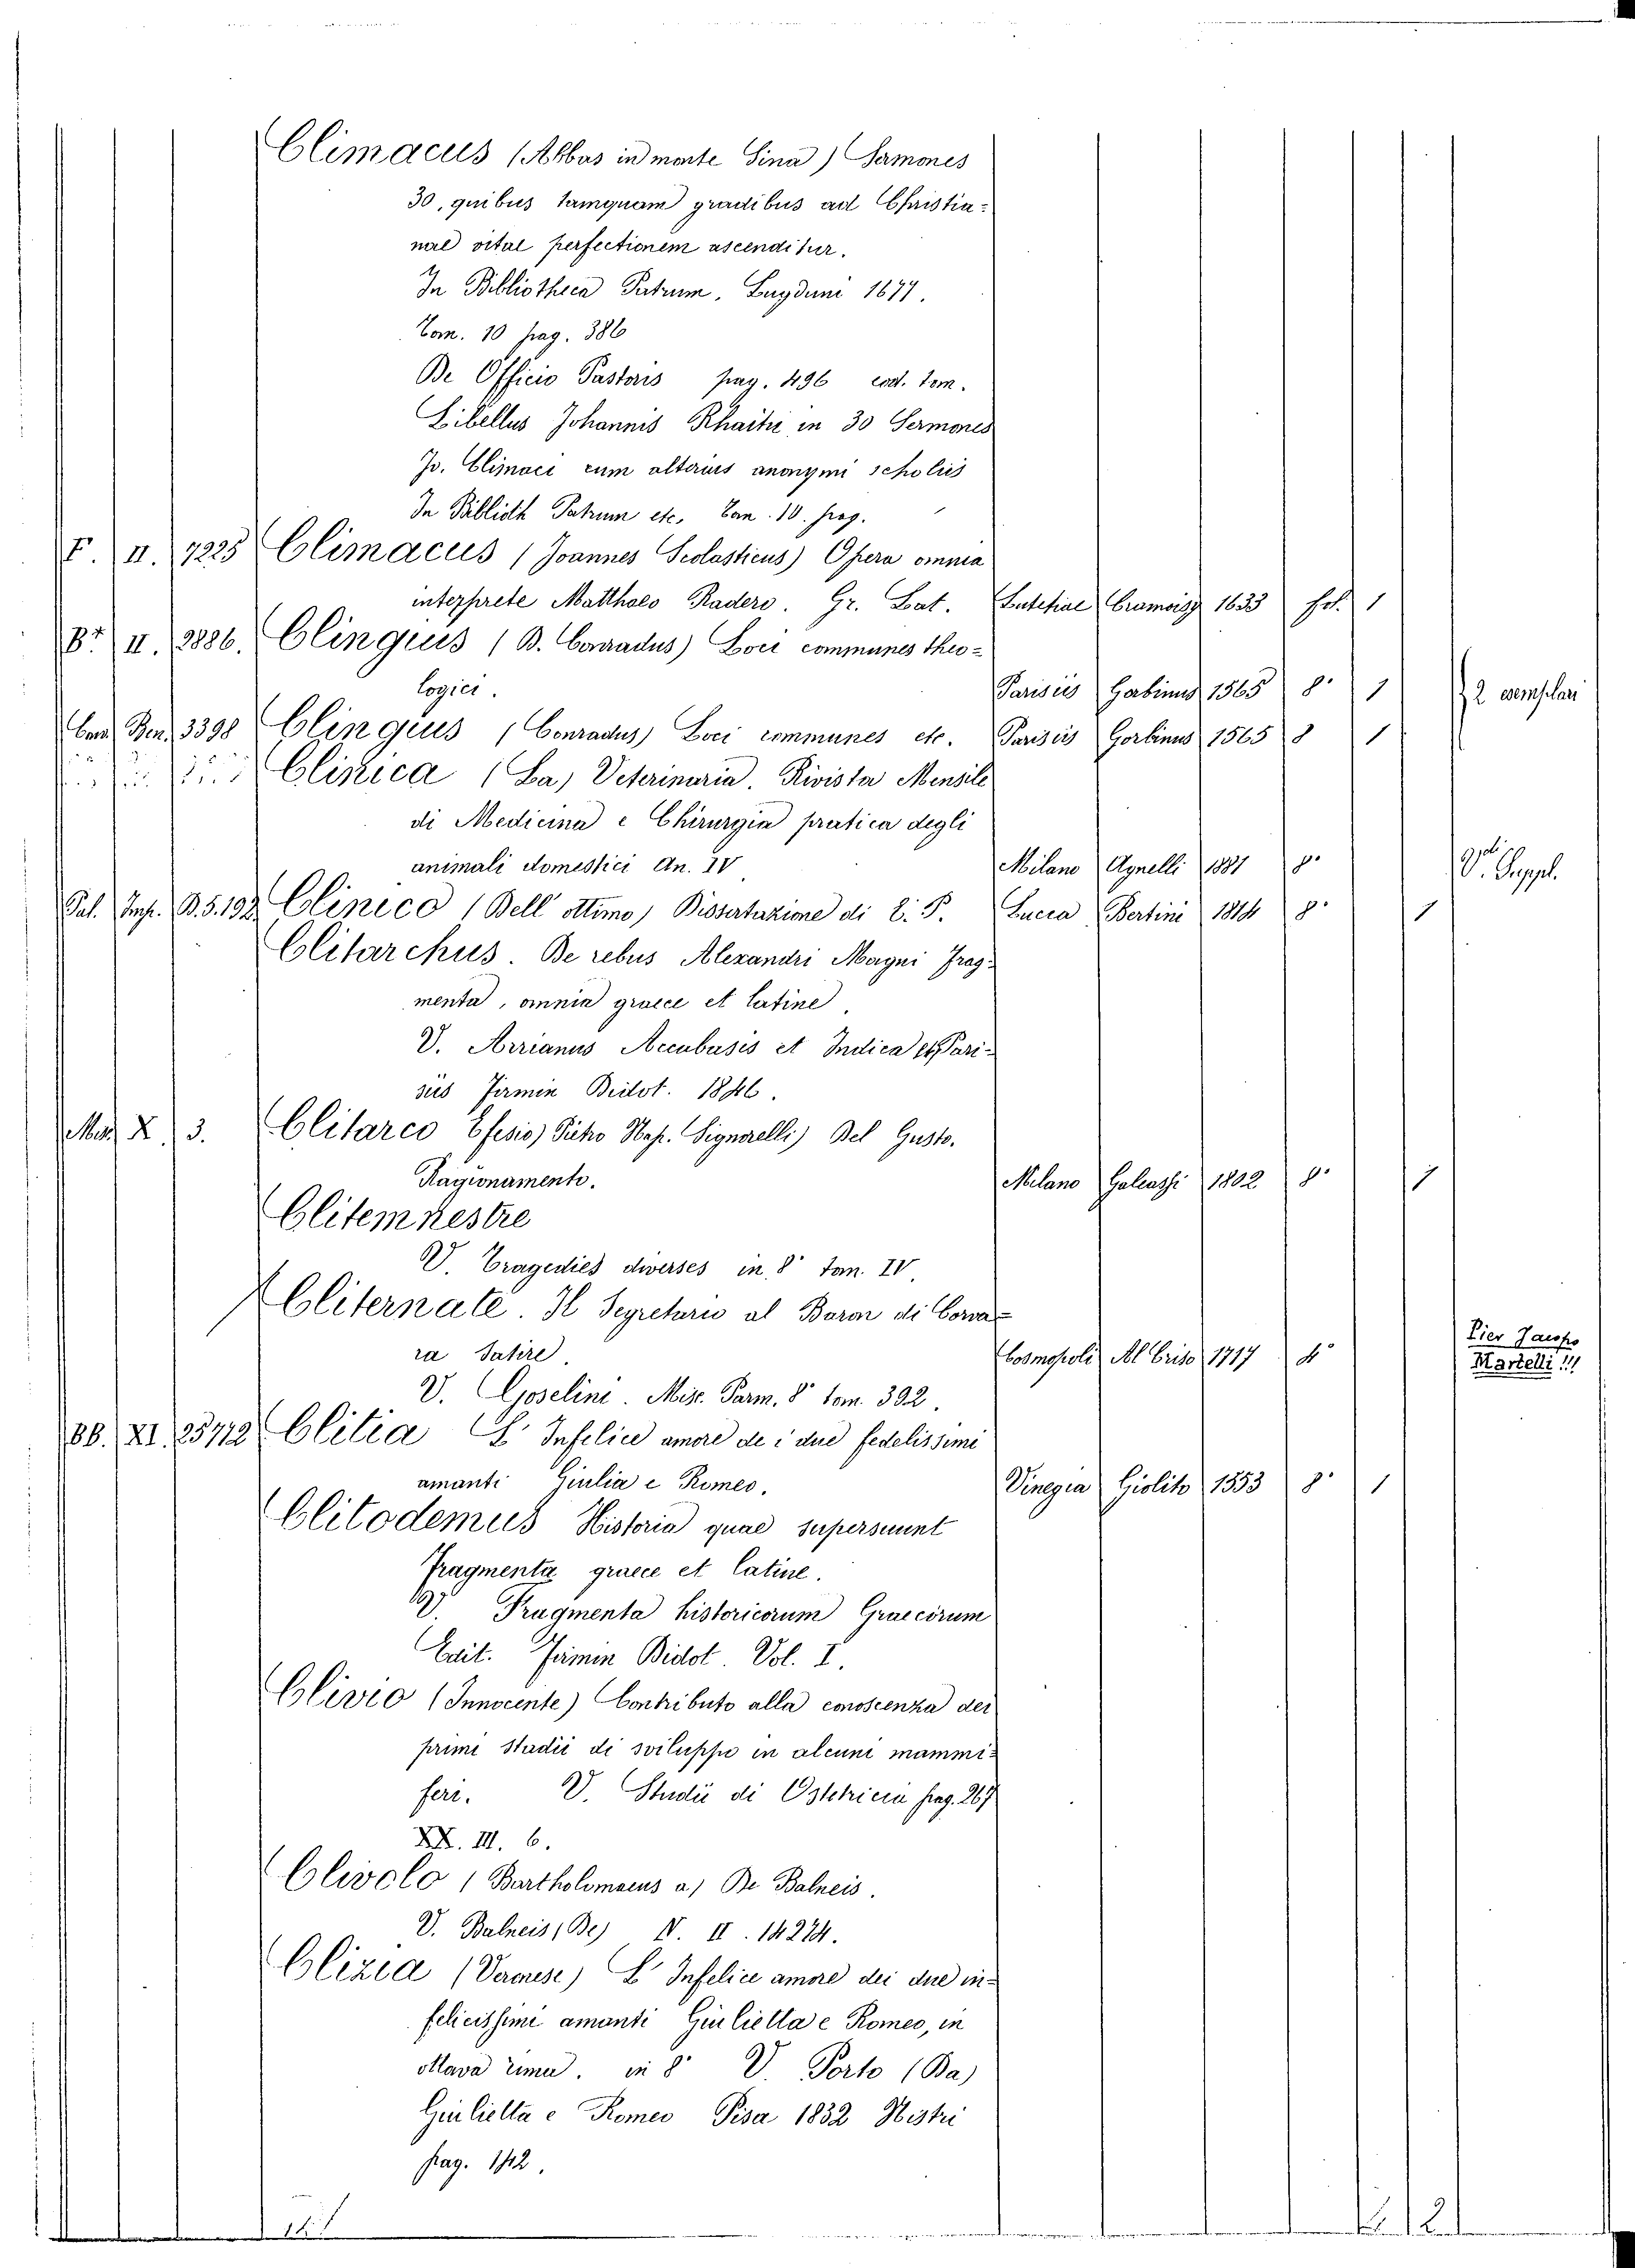 Climacus (Abbas in monte Sina) Sermones
30, quibus tamquam gradibus ad Christia=
nae vitae perfectionem ascenditur.
In Bibliotheca Patrum. Lugduni 1677.
Tom. 10 pag. 386
De Officio Pastoris pag. 496 eod. tom.
Libellus Johannis Rhaiti in 30 Sermones
Jo. Climaci cum alterius anonymi scholiis
In Biblioth Patrum etc. Tom. 10. pag.
F. II. 7225 Climacus (Joannes Scolasticus) Opera omnia
interprete Matthaeo Radero. Gr. Lat. Lutetiae Cramoisy 1633 fol. 1
II. 2886. Clingius (B. Conradus) Loci communes theo=
logici. Parisiis Gorbinus 1565 8° 1 2 esemplari
Ben. 3398 Clingius (Conradus) Loci communes etc. Parisiis Gorbinus 1565 8 1
Clinica (La) Veterinaria. Rivista Mensile
di Medicina e Chirurgia pratica degli
animali domestici An. IV Milano Agnelli 1881 8° V. Suppl.
Pal. Imp. B.5.192 Clinico (Dell' ottimo) Dissertazione di L. P. Lucca Bertini 1814 8° 1
Clitarchus. De rebus Alexandri Magni frag=
menta, omnia graece et latine.
V. Arrianus Anabasis et Indica et Pari=
siis Firmin Didot. 1846.
X 3. Clitarco Efesio) Pietro Nap. Signorelli) Del Gusto.
Ragionamento. Milano Galeazzi 1802 8° 1
Clitemnestre
V. Tragedies diverses in 8° tom. IV.
Cliternate. Il Segretario al Baron di Corva=
ra Satire. Cosmopoli Al Criso 1717 4° Pier Jacopo
Martelli!!!
V. Goselini. Misc. Parm. 8° tom. 392.
BB. XI. 25712 Clitia L' Infelice amore de i due fedelissimi
amanti Giulia e Romeo. Vinegia Giolito 1553 8° 1
Clitodemus Historia quae supersunt
fragmenta graece et latine.
V. Fragmenta historicorum Graecorum
Edit. Firmin Didot. Vol. I.
Clivio (Innocente) Contributo alla conoscenza dei
primi stadii di sviluppo in alcuni mammi=
feri. V. Studii di Ostetricia pag. 267
XX. III. 6.
Clivolo (Bartholomaeus a) De Balneis.
V. Balneis (De) V. II. 14274.
Clizia (Veronese) L' Infelice amore dei due in=
felicissimi amanti Giulietta e Romeo, in
ottava rima. in 8° V. Porto (Da)
Giulietta e Romeo Pisa 1832 Nistri
pag. 142.